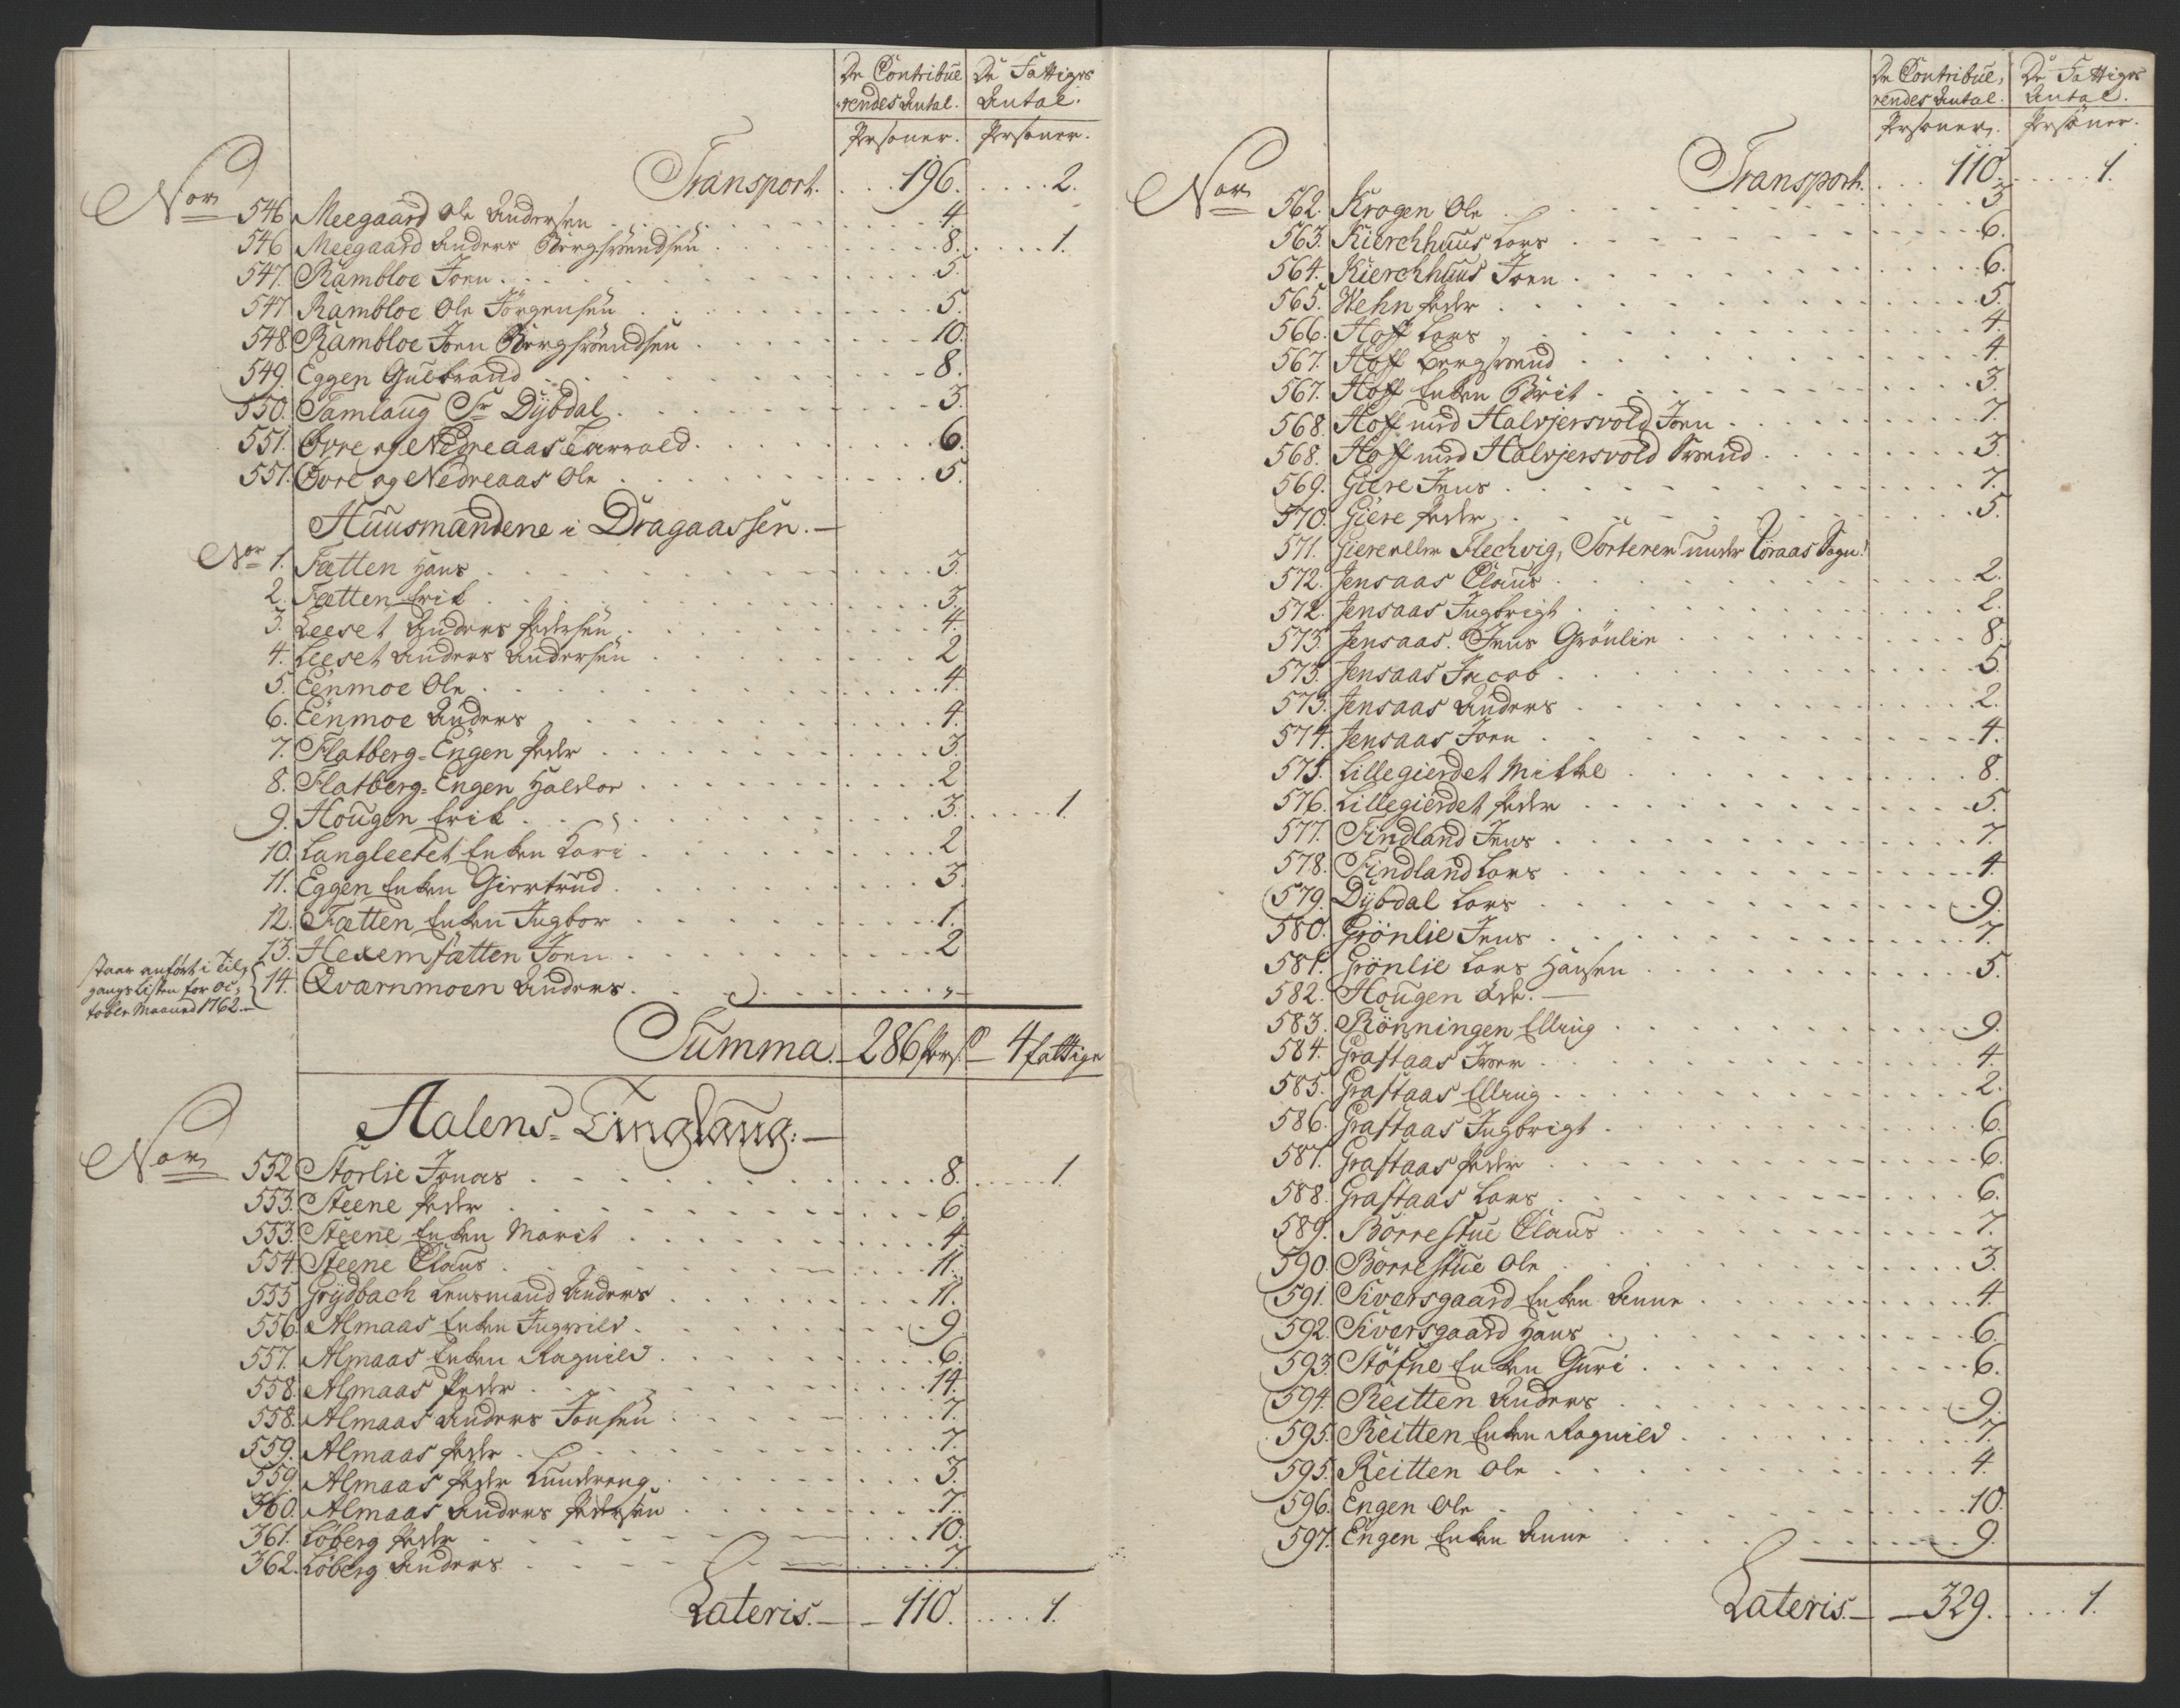 De Contribue- De Fattiges
rendes Antal. Antal.
Personer. Personer.
Transport. 196. 2.
No
546 Meegaard Ole Andersen 4.
546 Meegaard Anders Bergsvendsen 8. 1.
547. Rambloe Joen 5.
547 Rambloe Ole Jörgensen 5.
548 Rambloe Joen Bergsvendsen 10.
549. Eggen Gulbrand 8.
550. Tamlaug Sr Dÿbdal 3.
551. Övre og Nedreaas Tarrald 6.
551. Övre og Nedreaas Ole 5.
Huusmændene i Dragaassen.
No 1. Fætten Hans 3.
2. Fætten Erik 3.
3. Leeset Anders Pedersen 4.
4. Leeset Anders Andersen 2
5. Eenmoe Ole 4.
6. Eenmoe Anders 4.
7. Flatberg-Engen Peder 3.
8. Flatberg-Engen Haldor 2
9. Hougen Erik 3. 1.
10. Langleetet Enken Kari 2
11. Eggen Enken Giertrud 3.
12. Fætten Enken Ingbor 1.
13. Hexemfætten Joen 2
staar anfört i Til-
gangs Listen for Oc-
tober Maaned 1762.
14. Qværnmoen Anders „
Summa. 286 Pers. 4 fattige
Aalens Tinglaug:
No
552 Storlie Jonas 8. 1.
553. Steene Peder 6.
553. Steene Enken Marit 4.
554. Steene Claus 11.
555 Grÿdbach Lensmand Anders 11.
556. Almaas Enken Ingveild 9
557. Almaas Enken Ragnild 6.
558. Almaas Peder 14.
558. Almaas Anders Jonsen 7.
559. Almaas Peder 7.
559. Almaas Peder Lundereng 3.
360. Almaas Anders Pedersen 7.
361. Löberg Peder 10.
362. Löberg Anders 7.
Lateris. 110. 1.
De Contribue- De Fattiges
rendes Antal. Antal.
Personer. Personer.
Transport. 110. 1.
No
562. Krogen Ole 3
563. Kierchhuus Lars 6.
564. Kierchhuus Joen 6.
565. Wehn Peder 5.
566. Hoff Lars 4.
567. Hoff Bergsvend 4.
567. Hoff Enken Brit 3.
568. Hoff med Halvjersvold Joen 7.
568. Hoff med Halvjersvold Svend 3.
569. Giere Jens 7.
570. Giere Peder 5.
571. Giere eller Flechvig, Sorterer under Röraas Sogn.
572. Jensaas Claus 2.
572. Jensaas Ingbrigt 2.
573. Jensaas. Jens Grönlie 8.
573. Jensaas Jacob 5.
573. Jensaas Anders 2.
574. Jensaas Joen 4.
575. Lillegierdet Mikkel 8.
576. Lillegierdet Peder 5.
577. Findland Jens 7.
578. Findland Lars 4
579. Dÿbdal Lars 9.
580. Grönlie Jens 7.
581. Grönlie Lars Hansen 5.
582. Hougen öde.
583. Rönningen Elling 9.
584. Graftaas Iver 4.
585. Graftaas Elling 2.
586. Graftaas Ingbrigt 6.
587. Graftaas Peder 6.
588. Graftaas Lars 6.
589. Börrestue Claus 7.
590. Börrestue Ole 3.
591. Siversgaard Enken Anne 4.
592. Siversgaard Hans 6.
593. Stöfne Enken Guri 6.
594. Reitten Anders 9.
595. Reitten Enken Ragnild 7.
595. Reitten Ole 4.
596. Engen Ole 10.
597. Engen Enken Anne 9.
Lateris. 329. 1.